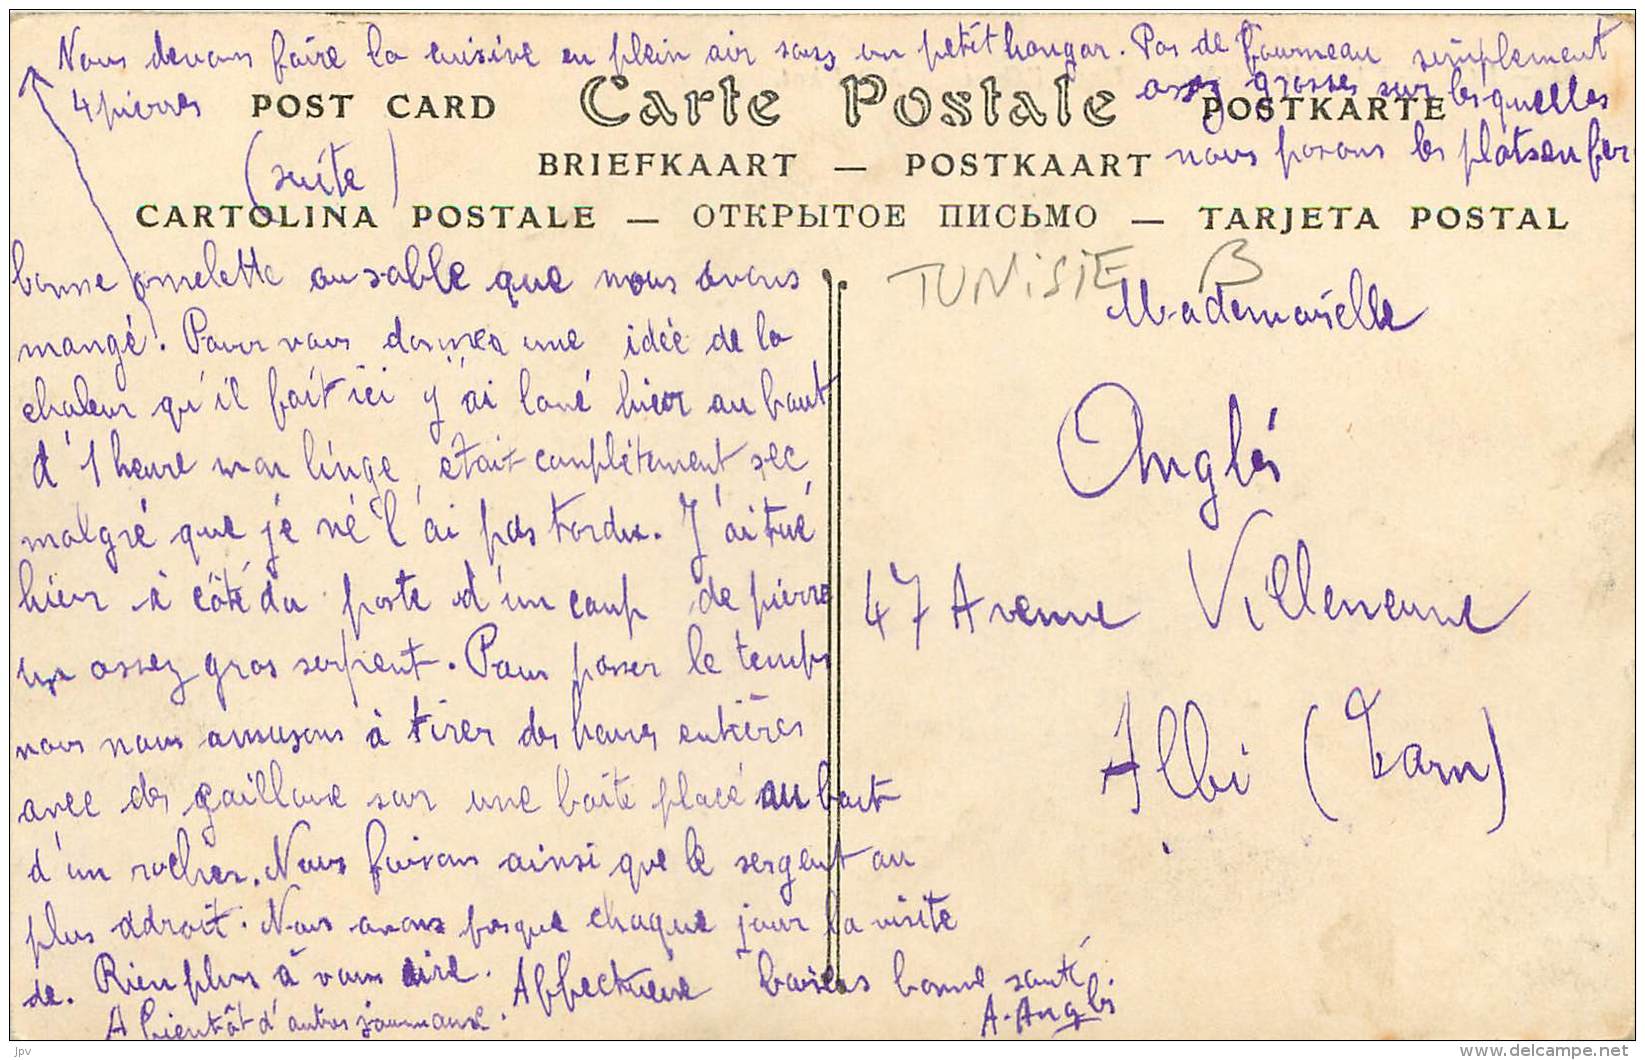 Nous devons faire la cuisine en plein air sous un petit hangar. Pas de fourneau simplement
4 pierres assez grosses sur lesquelles
nous posons les plats en fer
POST CARD Carte Postale POSTKARTE
BRIEFKAART — POSTKAART
(suite)
CARTOLINA POSTALE — ОТКРЫТОЕ ПИСЬМО — TARJETA POSTAL
bonne omelette au sable que nous avons
mangé. Pour vous donner une idée de la
chaleur qu'il fait ici j'ai lavé hier au bout
d'1 heure mon linge était complètement sec
malgré que je ne l'ai pas tordu. J'ai tué
hier à côté du poste d'un coup de pierre
un assez gros serpent. Pour passer le temps
nous nous amusons à tirer des heures entières
avec des cailloux sur une boite placé au bout
d'un rocher. Nous faisons ainsi que le sergent au
plus adroit. Nous avons presque chaque jour la visite
de. Rien plus à vous dire. Affectueux baisers bonne santé.
A bientôt d'autres journaux. A. Anglès
TUNISIE B
Mademoiselle
Anglès
47 Avenue Villeneuve
Albi (Tarn)
jpv
www.delcampe.net